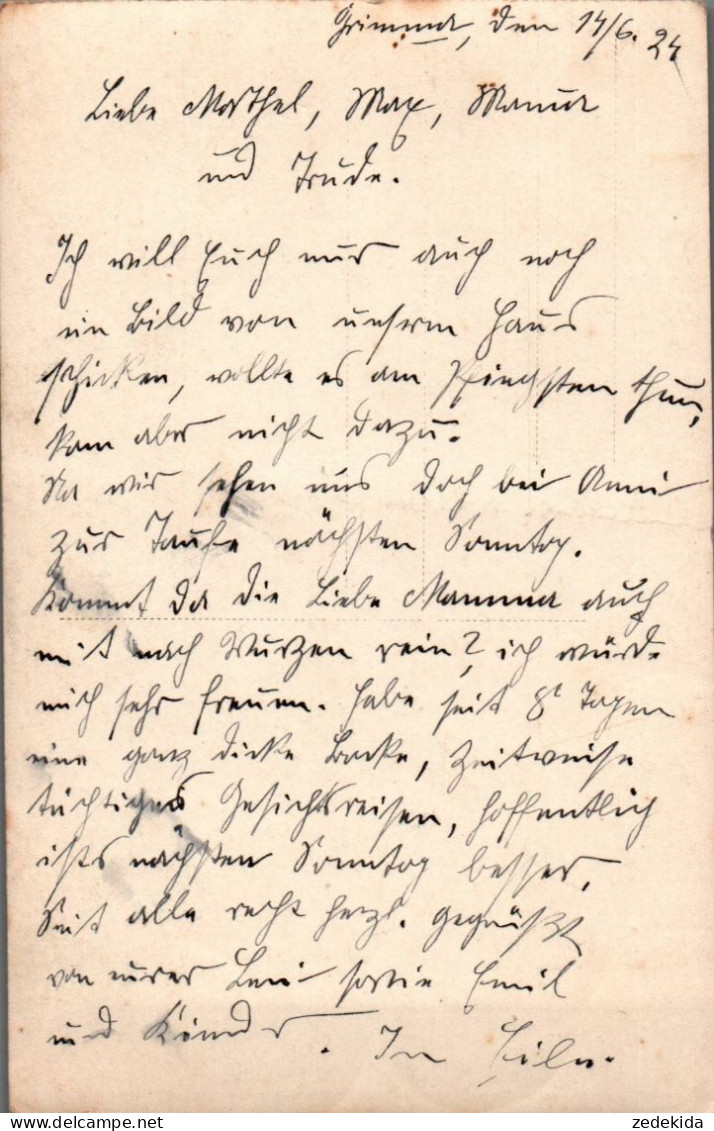 Grimma, den 14/6. 24
Liebe Marthel, Max, Mama
und Trude.
Ich will Euch nur auch noch
ein Bild von unserm Haus
schicken, wollte es am Pfingsten thun,
kam aber nicht dazu.
Na wir sehen uns doch bei Anni
zur Taufe nächsten Sonntag.
Kommt da die Liebe Mamma auch
mit nach Wurzen rein? ich würde
mich sehr freuen. Habe seit 8t Tagen
eine ganz dicke Backe, Zeitweise
tüchtiges Gesichtsreisen, hoffentlich
ists nächsten Sonntag besser.
Seit alle recht herzl. gegrüßt
von eurer Leni sowie Emil
und Kinder. In Eile.
zedekida